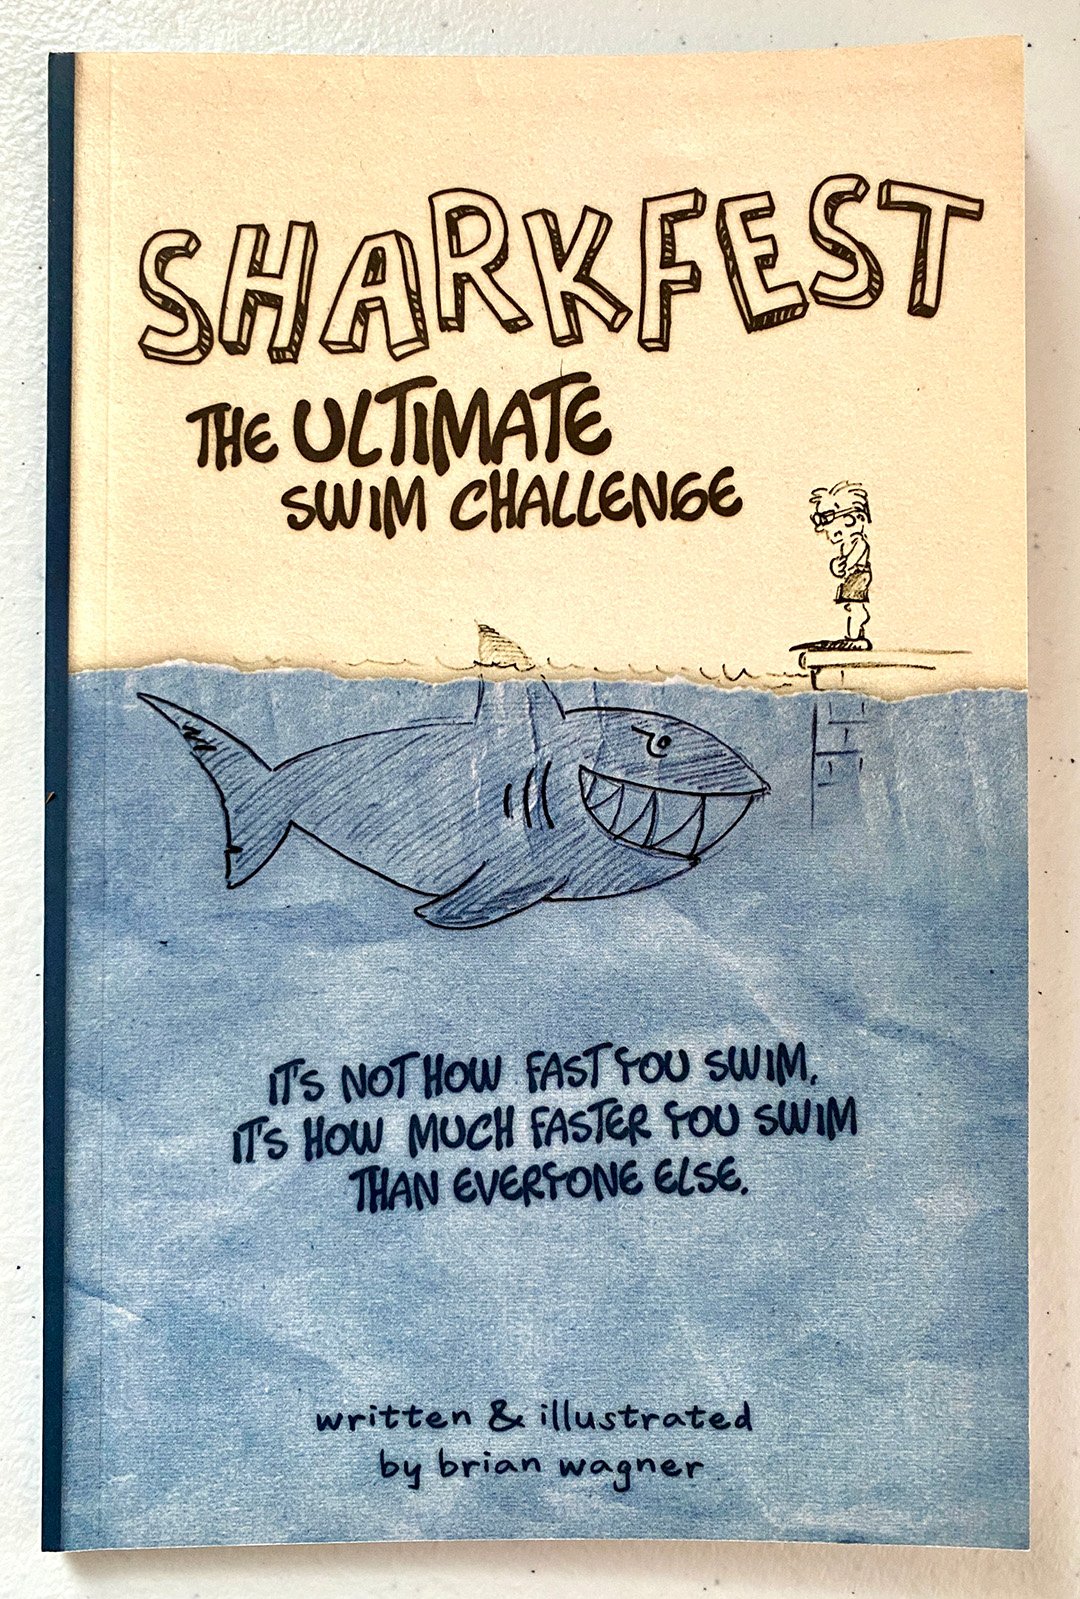 SHARKFEST
THE ULTIMATE
SWIM CHALLENGE
IT'S NOT HOW FAST YOU SWIM.
IT'S HOW MUCH FASTER YOU SWIM
THAN EVERYONE ELSE.
written & illustrated
by brian wagner